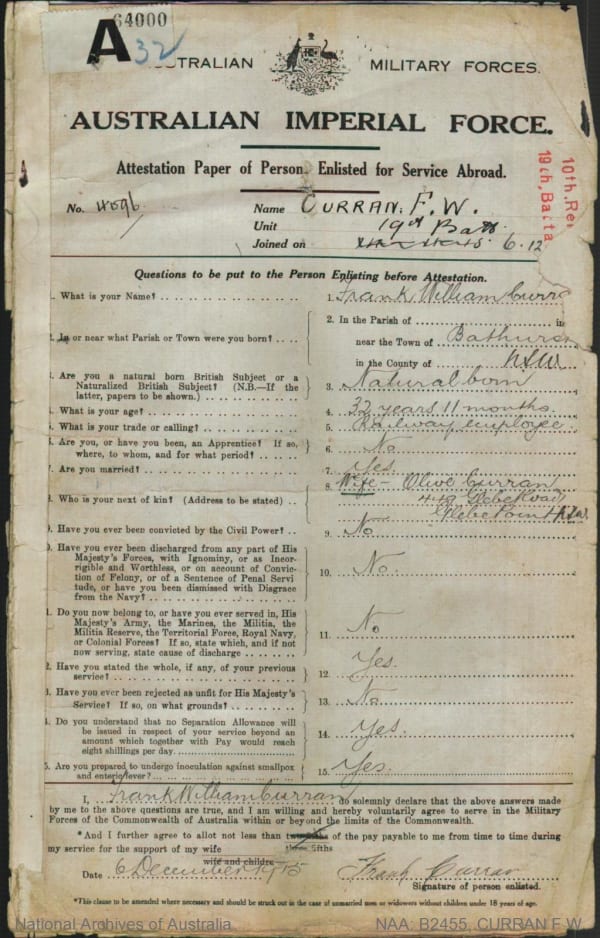 64000
A 32
AUSTRALIAN MILITARY FORCES.
AUSTRALIAN IMPERIAL FORCE.
Attestation Paper of Person Enlisted for Service Abroad.
10th, Rei
19th, Batta
No. 4096
Name CURRAN, F. W.
Unit 19th Batt.
Joined on 6.12
Questions to be put to the Person Enlisting before Attestation.
1. What is your Name? 1. Frank William Curra
2. In or near what Parish or Town were you born? 2. In the Parish of in
near the Town of Bathurs
in the County of NSW
3. Are you a natural born British Subject or a
Naturalized British Subject? (N.B.—If the
latter, papers to be shown.) 3. Natural born
4. What is your age? 4. 32 years 11 months.
5. What is your trade or calling? 5. Railway employee.
6. Are you, or have you been, an Apprentice? If so,
where, to whom, and for what period? 6. No
7. Are you married? 7. Yes.
8. Who is your next of kin? (Address to be stated) 8. Wife - Olive Curran
449 Glebe Road
Glebe Point NSW
9. Have you ever been convicted by the Civil Power? 9. No
10. Have you ever been discharged from any part of His
Majesty's Forces, with Ignominy, or as Incor-
rigible and Worthless, or on account of Convic-
tion of Felony, or of a Sentence of Penal Servi
tude, or have you been dismissed with Disgrace
from the Navy? 10. No.
11. Do you now belong to, or have you ever served in, His
Majesty's Army, the Marines, the Militia, the
Militia Reserve, the Territorial Force, Royal Navy,
or Colonial Forces? If so, state which, and if not
now serving, state cause of discharge 11. No
12. Have you stated the whole, if any, of your previous
service? 12. Yes.
13. Have you ever been rejected as unfit for His Majesty's
Service? If so, on what grounds? 13. No
14. Do you understand that no Separation Allowance will
be issued in respect of your service beyond an
amount which together with Pay would reach
eight shillings per day. 14. Yes.
15. Are you prepared to undergo inoculation against smallpox
and enteric fever? 15. Yes.
I, Frank William Curran do solemnly declare that the above answers made
by me to the above questions are true, and I am willing and hereby voluntarily agree to serve in the Military
Forces of the Commonwealth of Australia within or beyond the limits of the Commonwealth.
*And I further agree to allot not less than two-fifths of the pay payable to me from time to time during
three fifths
my service for the support of my wife
wife and children
Date 6 December 1915 Frank Curran
Signature of person enlisted.
*This clause to be amended where necessary and should be struck out in the case of unmarried men or widowers without children under 18 years of age.
National Archives of Australia NAA: B2455, CURRAN F W